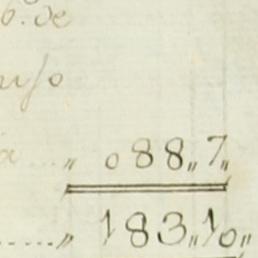 6. de
a .... " 088" 7"
..... " 183" 10"